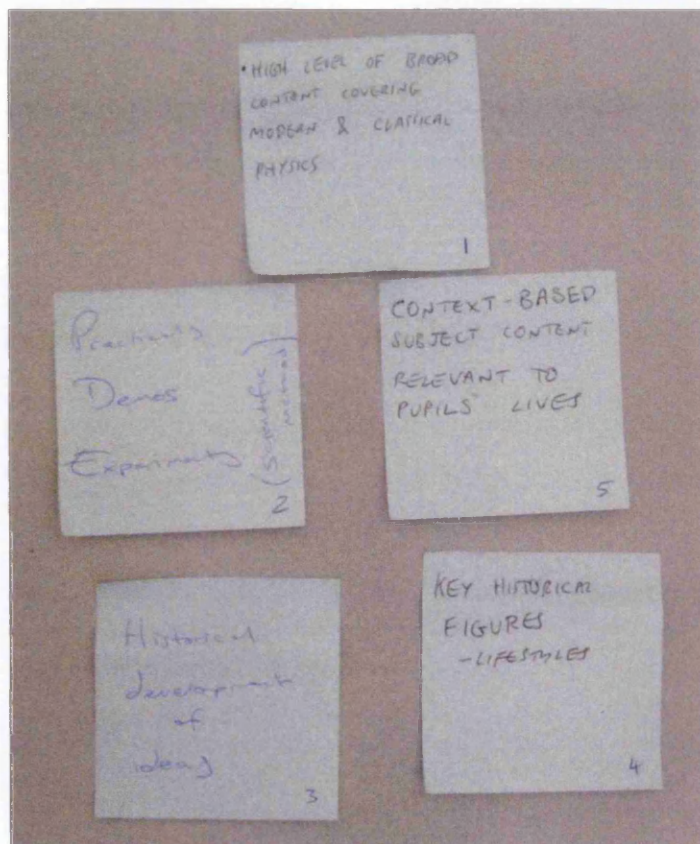 • HIGH LEVEL OF BROAD
CONTENT COVERING
MODERN & CLASSICAL
PHYSICS
1
Practicals
Demos
Experiments
(Scientific
method)
2
CONTEXT-BASED
SUBJECT CONTENT
RELEVANT TO
PUPILS' LIVES
5
Historical
development
of
ideas
3
KEY HISTORICAL
FIGURES
-LIFESTYLES
4